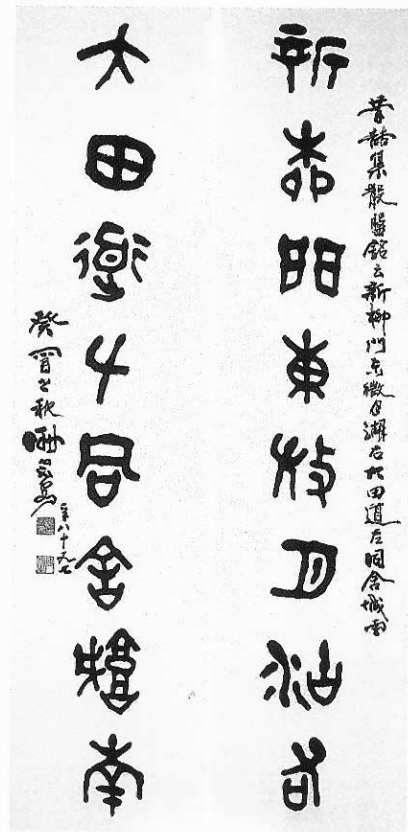 集散盤銘云新柳門東微月湖右大田道左同舍城南
新柳門東微月湖右
大田道左同舍城南
癸卯之秋
年八十又七